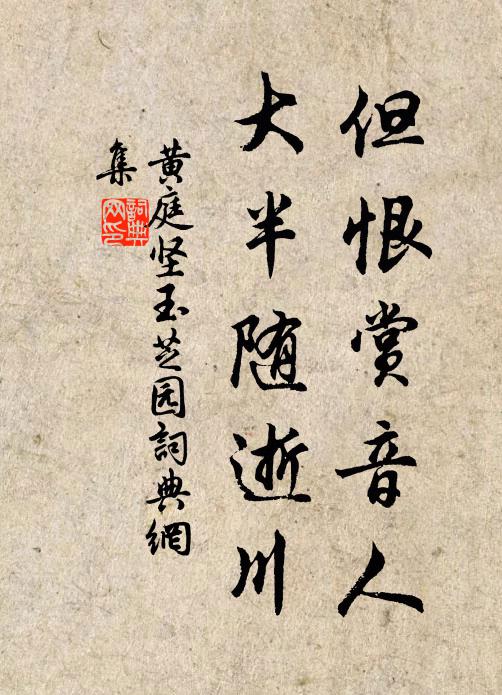 但恨赏音人
大半随逝川
黄庭坚玉芝园詞典網
集
詞典網印